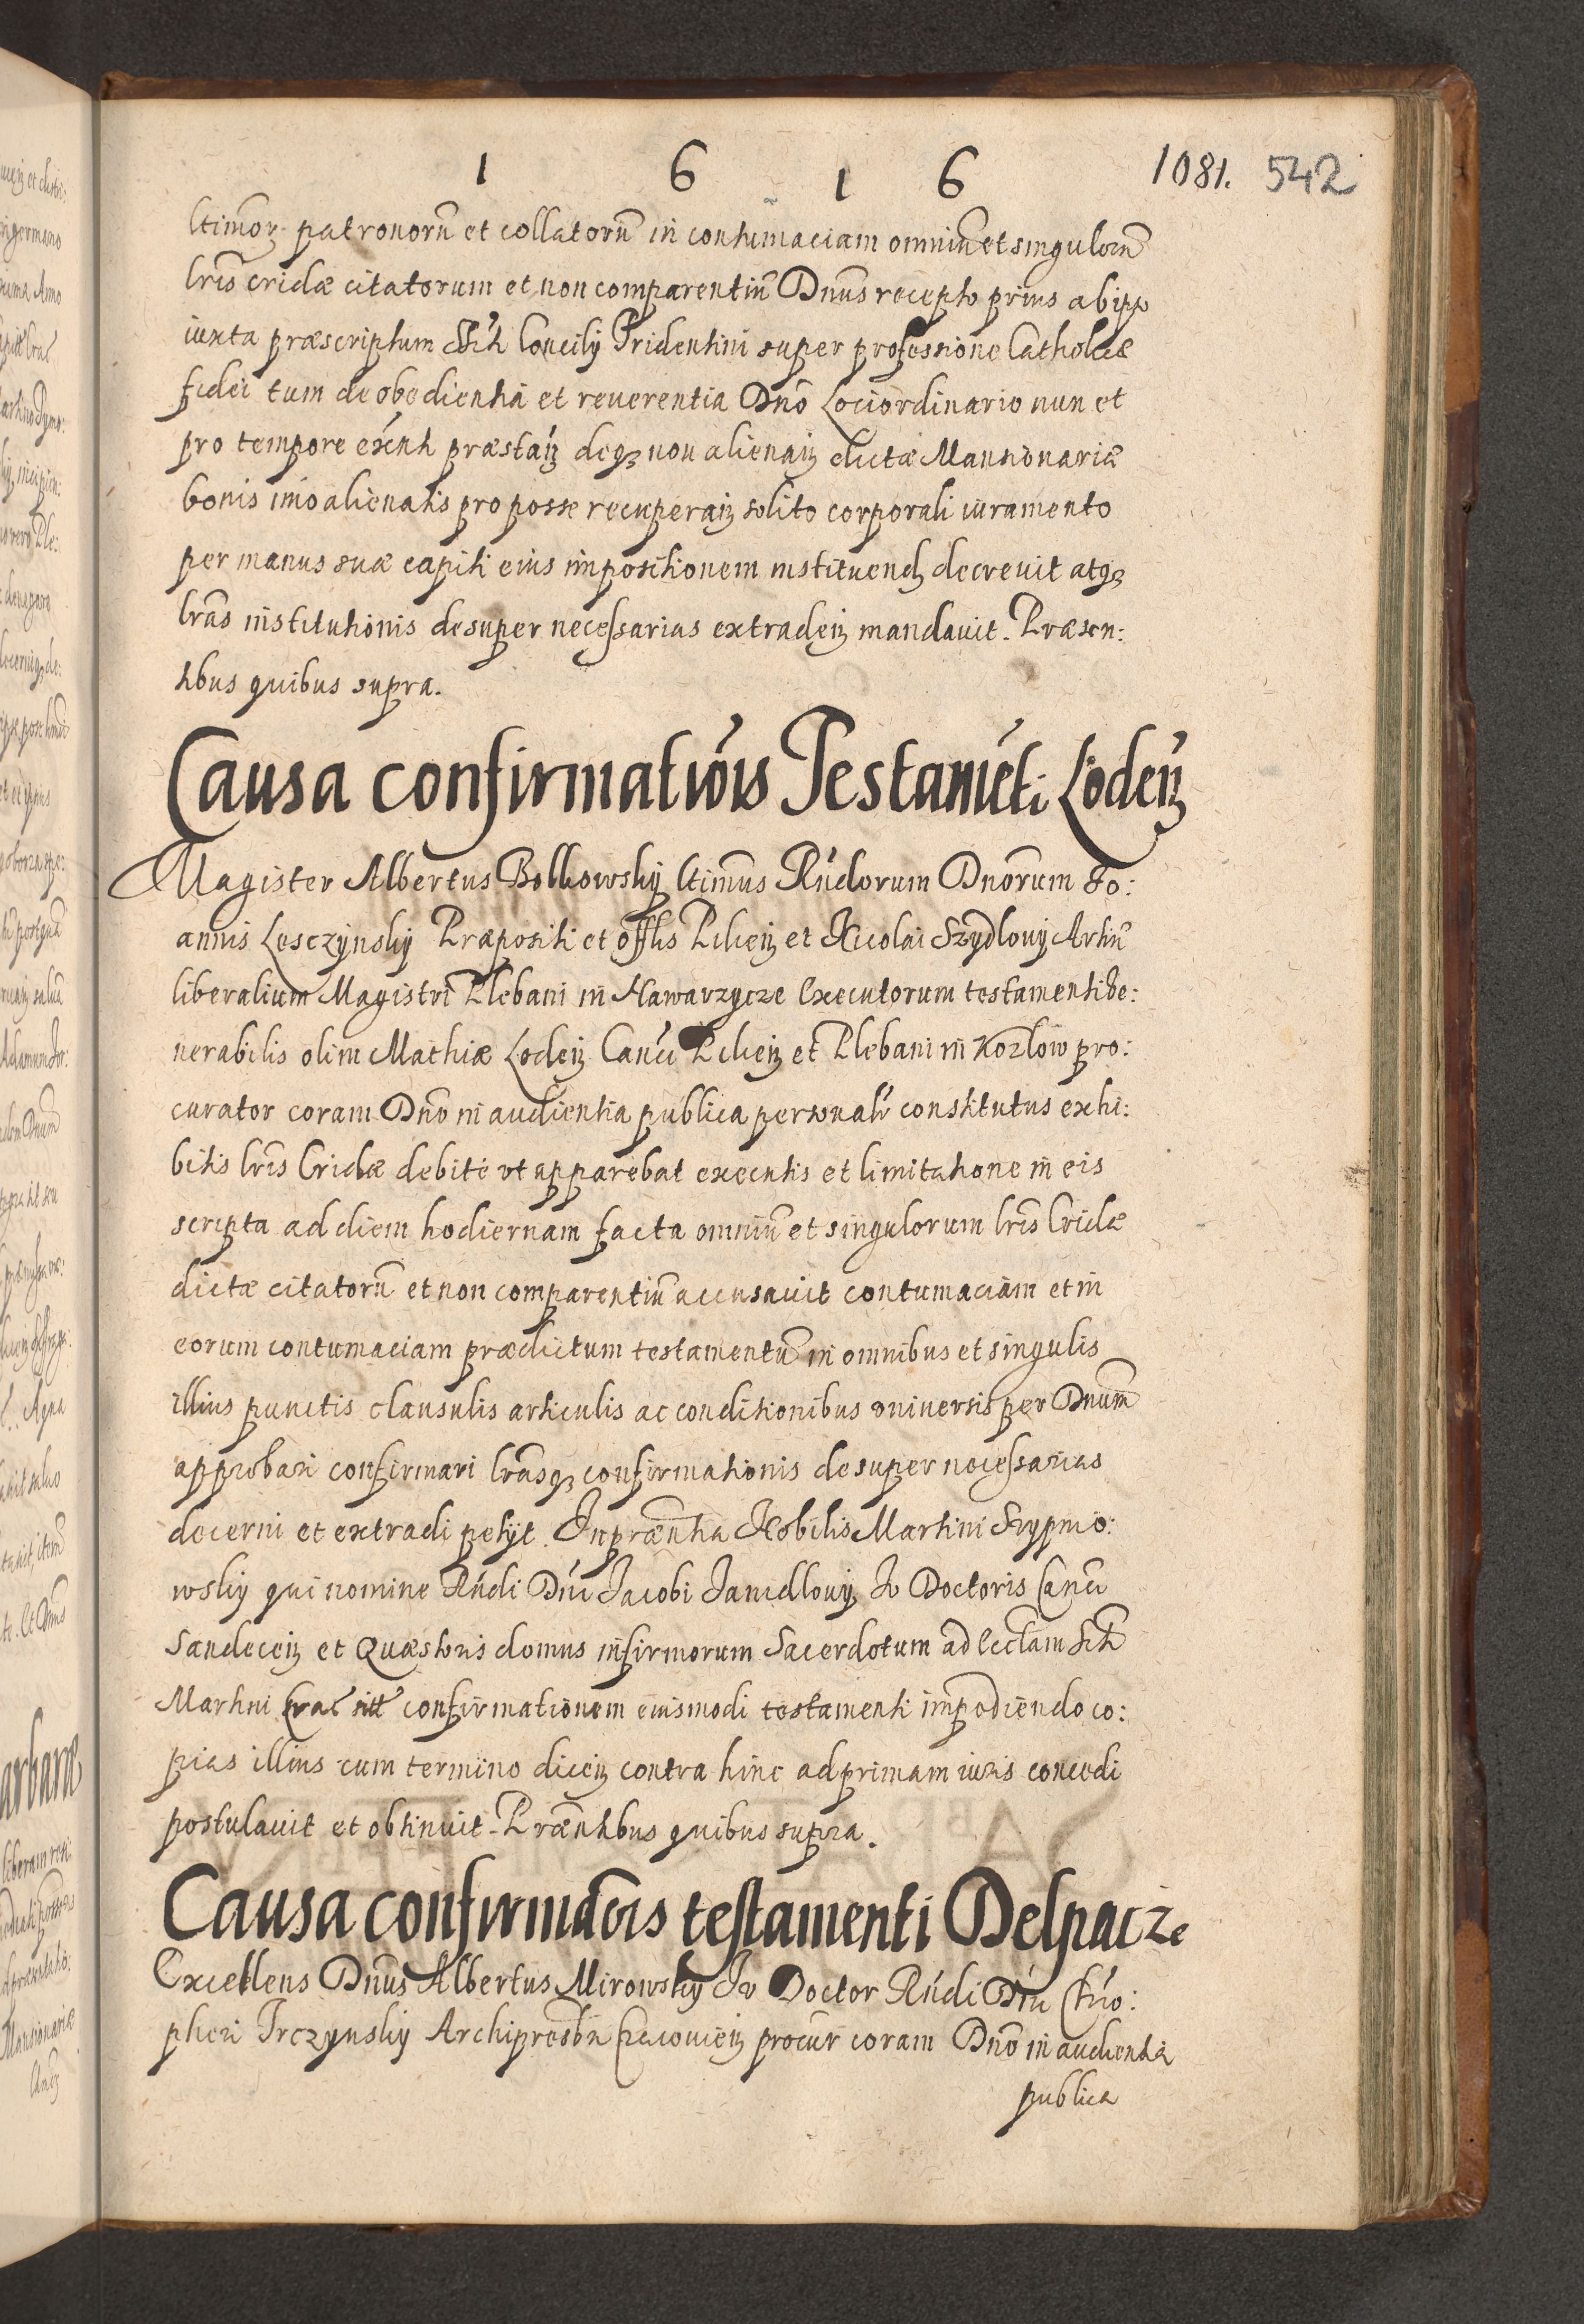 1 6 1 6 1081. 542
ltimor patronorũ et collatorũ in contumaciam omniũ et singulorũ
lris cridæ citatorum et non comparentiũ Dnus recepto prius ab ipso
iuxta præscriptum Concilij Tridentini super professione Catholicæ
fidei tum de obedientia et reuerentia Dno Loci ordinario nun et
pro tempore exnti præstan deqz non alienan dictæ Mansionariæ
bonis imo alienatis pro posse recuperan solito corporali iuramento
per manus suæ capiti eius impositionem instituend decreuit atqz
lras institutionis desuper necessarias extraden mandauit. Præsen:
tibus quibus supra.
Causa confirmatiois Testameti Loden
Magister Albertus Bolkowskij ltimus Rndorum Dnorum Jo:
annis Lesczynskij Præpositi et offlis Pilcien et Nicolai Szydlovij Artiũ
liberalium Magistri Plebani in Hawarzycze Executorum testamenti Ve:
nerabilis olim Mathiæ Loden Canci Pilcien et Plebani in Kozlow pro:
curator coram Dno in audientia publica personalr constitutus exhi:
bitis lris Cridæ debite vt apparebat executis et limitatione in eis
scripta ad diem hodiernam facta omniũ et singulorum lris Cridæ
dictæ citatorũ et non comparentiũ accusauit contumaciam et in
eorum contumaciam prædictum testamentũ in omnibus et singulis
illius punctis clausulis articulis ac conditionibus vniuersis per Dnum
approbari confirmari lrasqz confirmationis desuper necessarias
decerni et extradi petijt. In præntia Nobilis Martini Szypnio:
wskij qui nomine Rndi Dni Jacobi Janidlovij Jv Doctoris Canci
Sandecen et Quæstoris domus infirmorum Sacerdotum ad Ecclam Scti
Martini Crac sitt confirmationem eiusmodi testamenti impediendo co:
pias illius cum termino dicen contra hinc ad primam iuris concedi
postulauit et obtinuit. Præntibus quibus supra.
Causa confirmaois testamenti Delpacze
Excellens Dnus Albertus Mirowskij Jv Doctor Rndi Dni Chrio:
pheri Trczynskij Archipresbri Cracouien procur coram Dno in audientia
publica